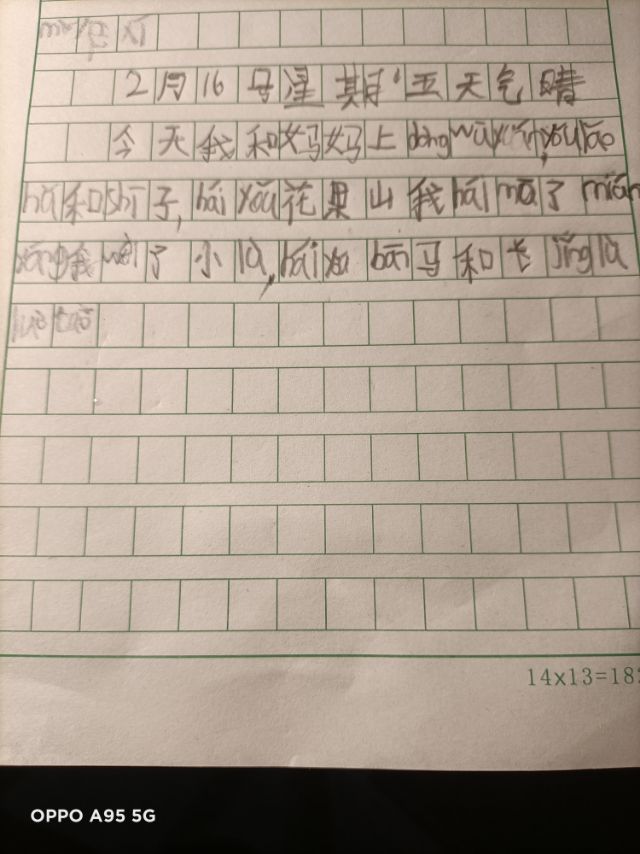 2月16号星期五天气晴
今天我和妈妈上dòng wù yuán,yǒu lǎo
hǔ和shī子,hái yǒu花果山我hái mō了mián
yáng我wèi了小lù,hái yǒu bān马和长jǐng lù
14x13=182
OPPO A95 5G